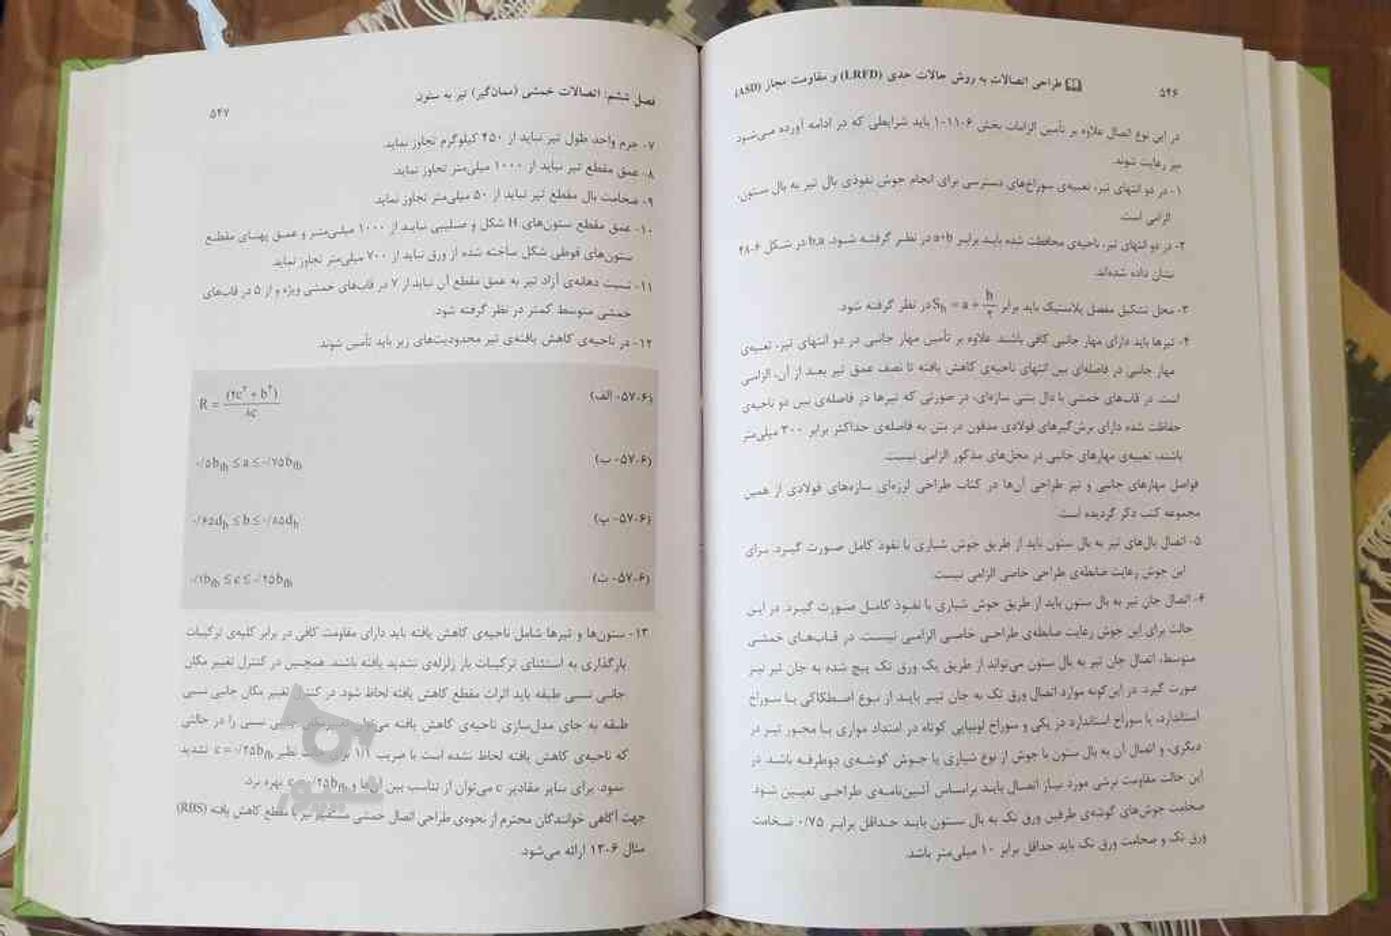 ۵۴۶
طراحی اتصالات به روش حالات حدی (LRFD) و مقاومت مجاز (ASD)
در این نوع اتصال علاوه بر تأمین الزامات بخش ۶-۱۱-۱ باید شرایطی که در ادامه آورده می‌شود
نیز رعایت شوند.
۱- در دو انتهای تیر، تعبیه‌ی سوراخ‌های دسترسی برای انجام جوش نفوذی بال تیر به بال ستون،
الزامی است.
۲- در دو انتهای تیر، ناحیه‌ی محافظت شده باید برابر a+b در نظر گرفته شود. b,a در شکل ۶-۴۸
نشان داده شده‌اند.
۳- محل تشکیل مفصل پلاستیک باید برابر Sh = a + b/۲ در نظر گرفته شود.
۴- تیرها باید دارای مهار جانبی کافی باشند. علاوه بر تأمین مهار جانبی در دو انتهای تیر، تعبیه‌ی
مهار جانبی در فاصله‌ای بین انتهای ناحیه‌ی کاهش یافته تا نصف عمق تیر بعد از آن، الزامی
است. در قاب‌های خمشی با دال بتنی سازه‌ای، در صورتی که تیرها در فاصله‌ی بین دو ناحیه‌ی
حفاظت شده دارای برش‌گیرهای فولادی مدفون در بتن به فاصله‌ی حداکثر برابر ۳۰۰ میلی‌متر
باشند، تعبیه‌ی مهارهای جانبی در محل‌های مذکور الزامی نیست.
فواصل مهارهای جانبی و نیز طراحی آن‌ها در کتاب طراحی لرزه‌ای سازه‌های فولادی از همین
مجموعه کتب ذکر گردیده است.
۵- اتصال بال‌های تیر به بال ستون باید از طریق جوش شیاری با نفوذ کامل صورت گیرد. برای
این جوش رعایت ضابطه‌ی طراحی خاصی الزامی نیست.
۶- اتصال جان تیر به بال ستون باید از طریق جوش شیاری با نفوذ کامل صورت گیرد. در این
حالت برای این جوش رعایت ضابطه‌ی طراحی خاصی الزامی نیست. در قاب‌های خمشی
متوسط، اتصال جان تیر به بال ستون می‌تواند از طریق یک ورق تک پیچ شده به جان تیر نیز
صورت گیرد. در این‌گونه موارد اتصال ورق تک به جان تیر باید از نوع اصطکاکی با سوراخ
استاندارد، یا سوراخ استاندارد در یکی و سوراخ لوبیایی کوتاه در امتداد موازی با محور تیر در
دیگری، و اتصال آن به بال ستون با جوش از نوع شیاری یا جوش گوشه‌ی دوطرفه باشد. در
این حالت مقاومت برشی مورد نیاز اتصال باید براساس آئین‌نامه‌ی طراحی تعیین شود.
ضخامت جوش‌های گوشه‌ی طرفین ورق تک به بال ستون باید حداقل برابر ۰/۷۵ ضخامت
ورق تک و ضخامت ورق تک باید حداقل برابر ۱۰ میلی‌متر باشد.
فصل ششم: اتصالات خمشی (ممان‌گیر) تیر به ستون
۵۴۷
۷- جرم واحد طول تیر نباید از ۴۵۰ کیلوگرم تجاوز نماید.
۸- عمق مقطع تیر نباید از ۱۰۰۰ میلی‌متر تجاوز نماید.
۹- ضخامت بال مقطع تیر نباید از ۵۰ میلی‌متر تجاوز نماید.
۱۰- عمق مقطع ستون‌های H شکل و صلیبی نباید از ۱۰۰۰ میلی‌متر و عمق پهنای مقطع
ستون‌های قوطی شکل ساخته شده از ورق نباید از ۷۰۰ میلی‌متر تجاوز نماید.
۱۱- نسبت دهانه‌ی آزاد تیر به عمق مقطع آن نباید از ۷ در قاب‌های خمشی ویژه و از ۵ در قاب‌های
خمشی متوسط کمتر در نظر گرفته شود.
۱۲- در ناحیه‌ی کاهش یافته‌ی تیر محدودیت‌های زیر باید تأمین شوند.
(۶-۵۷- الف) R = (۴c² + b²)/۸c
(۶-۵۷- ب) ۰/۵bfb ≤ a ≤ ۰/۷۵bfb
(۶-۵۷- پ) ۰/۶۵db ≤ b ≤ ۰/۸۵db
(۶-۵۷- ت) ۰/۱bfb ≤ c ≤ ۰/۲۵bfb
۱۳- ستون‌ها و تیرها شامل ناحیه‌ی کاهش یافته باید دارای مقاومت کافی در برابر کلیه‌ی ترکیبات
بارگذاری به استثنای ترکیبات بار زلزله‌ی تشدید یافته باشند. همچنین در کنترل تغییر مکان
جانبی نسبی طبقه باید اثرات مقطع کاهش یافته لحاظ شود. در کنترل تغییر مکان جانبی نسبی
طبقه به جای مدل‌سازی ناحیه‌ی کاهش یافته جانبی نسبی را در حالتی
که ناحیه‌ی کاهش یافته لحاظ نشده است با ضریب ۱/۱ نظیر c = ۰/۲۵bfb تشدید
نمود. برای سایر مقادیر c می‌توان از تناسب بین آن‌ها و ۰/۲۵bfb بهره برد.
جهت آگاهی خوانندگان محترم از نحوه‌ی طراحی اتصال خمشی مستقیم تیر با مقطع کاهش یافته (RBS)
مثال ۶-۱۳ ارائه می‌شود.
شیپور